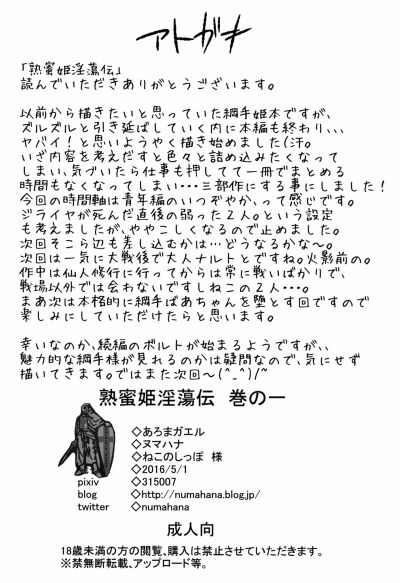 アトガキ
「熟蜜姫淫蕩伝」
読んでいただきありがとうございます。
以前から描きたいと思っていた綱手姫本ですが、
ズルズルと引き延ばしていく内に本編も終わり、、、
ヤバイ！と思いようやく描き始めました(汗。
いざ内容を考えだすと色々と詰め込みたくなって
しまい、気づいたら仕事も押してて一冊でまとめる
時間もなくなってしまい・・・三部作にする事にしました！
今回の時間軸は青年編のいつぞやか、って感じです。
ジライヤが死んだ直後の弱った２人。という設定
も考えましたが、ややこしくなるので止めました。
次回そこら辺も差し込むかは…どうなるかな～。
次回は一気に大戦後で大人ナルトとですね。火影前の。
作中は仙人修行に行ってからは常に戦いばかりで、
戦場以外では会わないですしねこの２人・・・。
まあ次は本格的に綱手ばあちゃんを堕とす回ですので
楽しみにしていただけたらと思います。
幸いなのか、続編のボルトが始まるようですが、、
魅力的な綱手様が見れるのかは疑問なので、気にせず
描いてきます。ではまた次回～(^_^)/~
熟蜜姫淫蕩伝　巻の一
◇あろまガエル
◇ヌマハナ
◇ねこのしっぽ 様
◇2016/5/1
pixiv ◇315007
blog ◇http://numahana.blog.jp/
twitter ◇numahana
成人向
18歳未満の方の閲覧、購入は禁止させていただきます。
※禁無断転載、アップロード等。